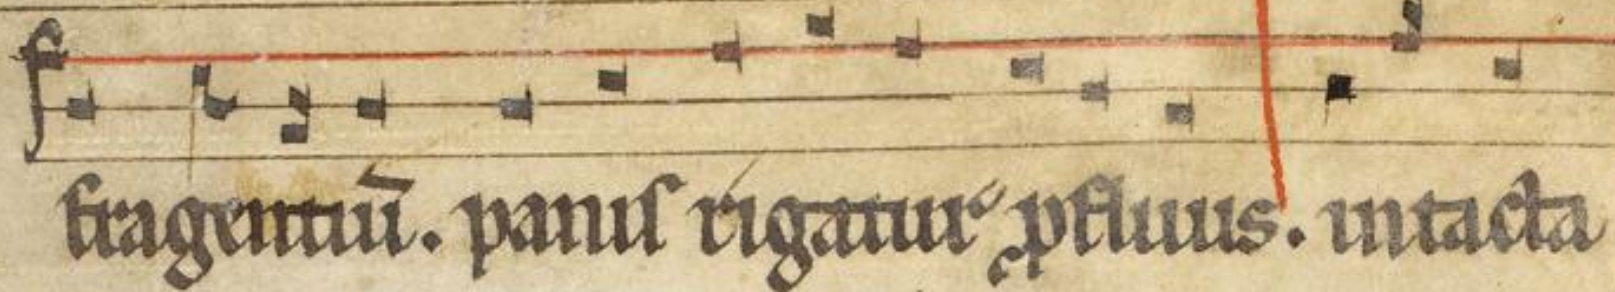 fragentiū. panis rigatur ꝓfluus. intacta